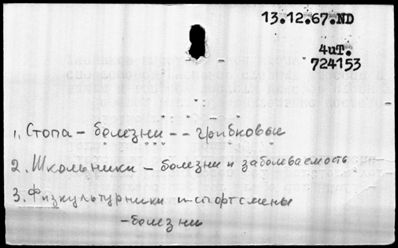 13.12.67.ND
4иТ.
724153
1. Стопа - болезни -- грибковые
2. Школьники - болезни и заболеваемость
3. Физкультурники и спортсмены
- болезни